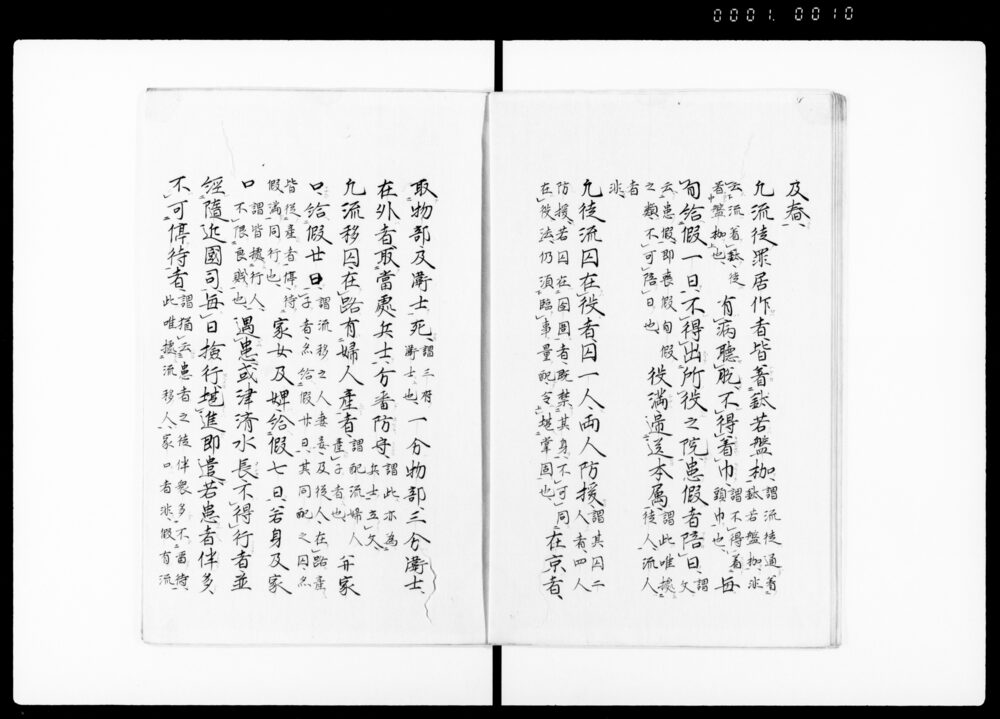 0001. 0010
及舂
凡流徒罪居作者皆著鈦若盤枷謂流徒通著鈦若盤枷非
云流著鈦徒著盤枷也有病聽脱不得著巾謂不得著頭巾也毎
旬給假一日不得出所役之院患假者陪日謂文
云患假即喪假旬假之類不可陪日也役満逓送本属謂此唯據徒人流人
者非
凡徒流囚在役者囚一人両人防援謂其囚二人者四人
防援若囚在囹圄者既禁其身不可同在役法仍須臨事量配令堪掌固也在京者
取物部及衛士死謂三府衛士也一分物部三分衛士
在外者取當處兵士分番防守謂此亦為兵士立文
凡流移囚在路有婦人産者謂配流婦人産子者也并家
口給假廿日謂流移之人妻妾及従人在路産子者亦給假廿日其同配之囚亦
皆従産者停待假満同行也家女及婢給假七日若身及家
口謂皆據行人不限良賤也遇患或津済水長不得行者並
經隨近國司毎日撿行堪進即遣若患者伴多
不可停待者謂猶云患者之徒伴衆多不可留待此唯據流移人家口者非假有流